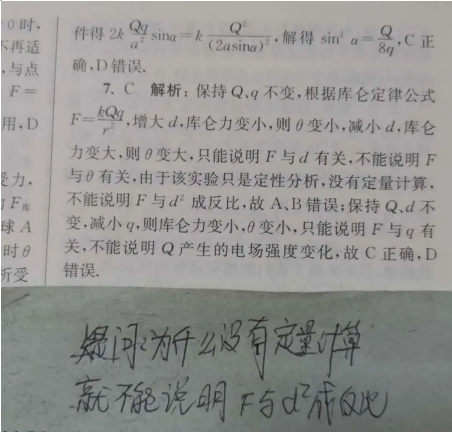 0时,
不再适
,与点
F=
用,D
受力,
力F库
球A
时θ
所受
件得2k Qq/a² sinα=k Q²/(2asinα)²,解得 sin³ α=Q/8q,C正
确,D错误.
7. C 解析:保持Q、q不变,根据库仑定律公式
F=kQq/r²,增大d,库仑力变小,则θ变小,减小d,库仑
力变大,则θ变大,只能说明F与d有关,不能说明F
与θ有关,由于该实验只是定性分析,没有定量计算,
不能说明F与d²成反比,故A、B错误;保持Q、d不
变,减小q,则库仑力变小,θ变小,只能说明F与q有
关,不能说明Q产生的电场强度变化,故C正确,D
错误.
疑问:为什么没有定量计算
就不能说明F与d²成反比